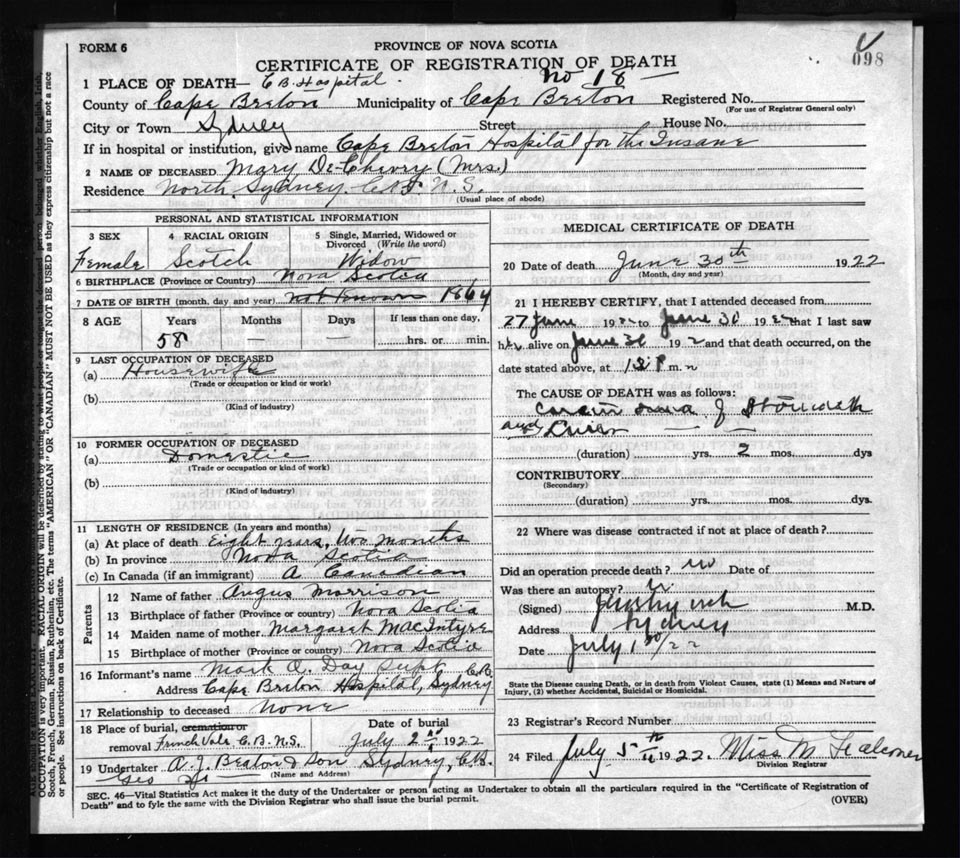 FORM 6
PROVINCE OF NOVA SCOTIA
098
CERTIFICATE OF REGISTRATION OF DEATH
No 18
1 PLACE OF DEATH— C.B. Hospital.
County of Cape Breton Municipality of Cape Breton Registered No.
(For use of Registrar General only)
City or Town Sydney Street House No.
If in hospital or institution, give name Cape Breton Hospital for the Insane
2 NAME OF DECEASED Mary De-Cherry (Mrs.)
Residence North Sydney, C.B. N.S.
(Usual place of abode)
PERSONAL AND STATISTICAL INFORMATION
3 SEX 4 RACIAL ORIGIN 5 Single, Married, Widowed or Divorced (Write the word)
Female Scotch Widow
6 BIRTHPLACE (Province or Country) Nova Scotia
7 DATE OF BIRTH (month, day and year) Not Known 1864
8 AGE Years Months Days If less than one day,
58 hrs. or min.
9 LAST OCCUPATION OF DECEASED
(a) Housewife
(Trade or occupation or kind or work)
(b)
(Kind of industry)
10 FORMER OCCUPATION OF DECEASED
(a) Domestic
(Trade or occupation or kind or work)
(b)
(Kind of industry)
11 LENGTH OF RESIDENCE (In years and months)
(a) At place of death Eight years, two months
(b) In province Nova Scotia
(c) In Canada (if an immigrant) A Canadian
Parents
12 Name of father Angus Morrison
13 Birthplace of father (Province or country) Nova Scotia
14 Maiden name of mother Margaret MacIntyre
15 Birthplace of mother (Province or country) Nova Scotia
16 Informant's name Mark A. Day Supt. C.B.
Address Cape Breton Hospital, Sydney
17 Relationship to deceased None
18 Place of burial, cremation or Date of burial
removal French Vale C.B. N.S. July 2nd 1922
19 Undertaker A.J. Beaton & Son Sydney, C.B.
(Name and Address)
MEDICAL CERTIFICATE OF DEATH
20 Date of death June 30th 1922
(Month, day and year)
21 I HEREBY CERTIFY, that I attended deceased from
27 June 1922 to June 30 1922 that I last saw
her alive on June 30 1922 and that death occurred, on the
date stated above, at m.
The CAUSE OF DEATH was as follows:
Carcinoma of Stomach
and Liver
(duration) yrs. 2 mos. dys
CONTRIBUTORY
(Secondary)
(duration) yrs. mos. dys.
22 Where was disease contracted if not at place of death?
Did an operation precede death? no Date of
Was there an autopsy?
(Signed) M.D.
Address Sydney
Date July 1st/22
State the Disease causing Death, or in death from Violent Causes, state (1) Means and Nature of Injury, (2) whether Accidental, Suicidal or Homicidal.
23 Registrar's Record Number
24 Filed July 5th 1922. Miss M.
Division Registrar
SEC. 46—Vital Statistics Act makes it the duty of the Undertaker or person acting as Undertaker to obtain all the particulars required in the "Certificate of Registration of
Death" and to fyle the same with the Division Registrar who shall issue the burial permit.
(OVER)
OCCUPATION is very important. RACIAL ORIGIN will be described by stating to what people or tongue the deceased person belonged, whether English, Irish,
Scotch, French, German, Russian, Ruthenian, etc. The terms "AMERICAN" OR "CANADIAN" MUST NOT BE USED as they express citizenship but not a race
or people. See instructions on back of Certificate.